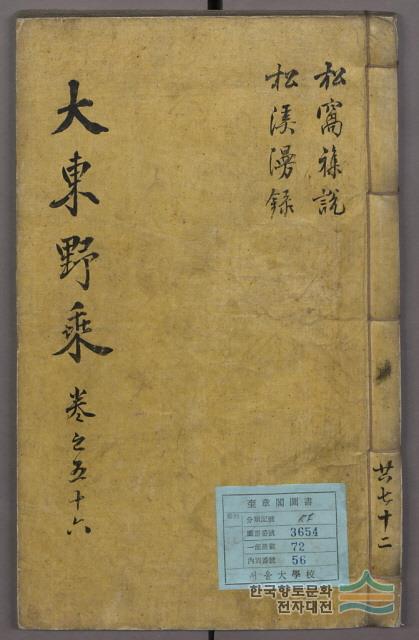 松窩雜說
松溪漫錄
大東野乘 卷之五十六
共七十二
奎章閣圖書
分類記號
圖書番號 3654
一部冊數 72
內第番號 56
서울大學校
한국향토문화
전자대전